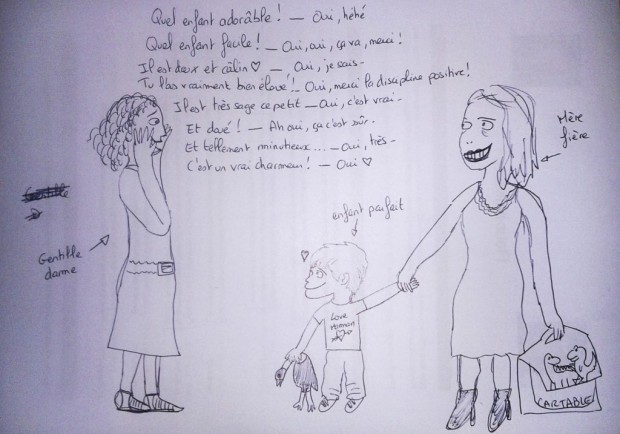 Quel enfant adorâble ! — Oui, héhé
Quel enfant facile ! — Oui, oui, ça va, merci !
Il est doux et câlin ♡ — Oui, je sais -
Tu l'as vraiment bien élevé ! - Oui, merci la discipline positive !
Il est très sage ce petit — Oui, c'est vrai -
Et doué ! — Ah oui, ça c'est sûr.
Et tellement minutieux... — Oui, très -
C'est un vrai charmeur ! — Oui ♡
Mère
fière
enfant parfait
Gentille
dame
Love
Maman
CARTABLE